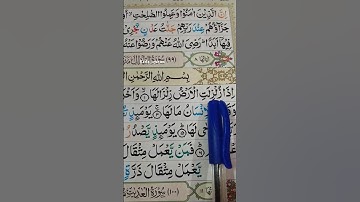 اِنَّ الَّذِيْنَ اٰمَنُوْا وَعَمِلُوا الصّٰلِحٰتِ
جَزَآؤُهُمْ عِنْدَ رَبِّهِمْ جَنّٰتُ عَدْنٍ تَجْرِيْ
فِيْهَآ اَبَدًا ؕ رَضِيَ اللّٰهُ عَنْهُمْ وَرَضُوْا عَنْهُ
(٩٩) سُوْرَةُ
بِسْمِ اللّٰهِ الرَّحْمٰنِ
اِذَا زُلْزِلَتِ الْاَرْضُ زِلْزَالَهَا ۝١ وَاَخْ
الْاِنْسَانُ مَا لَهَا ۝٣ يَوْمَئِذٍ
لَهَا ۝٥ يَوْمَئِذٍ يَّصْدُ
فَمَنْ يَّعْمَلْ مِثْقَالَ
يَّعْمَلْ مِثْقَالَ ذَرَّةٍ
(١٠٠) سُوْرَةُ الْعٰدِيٰتِ